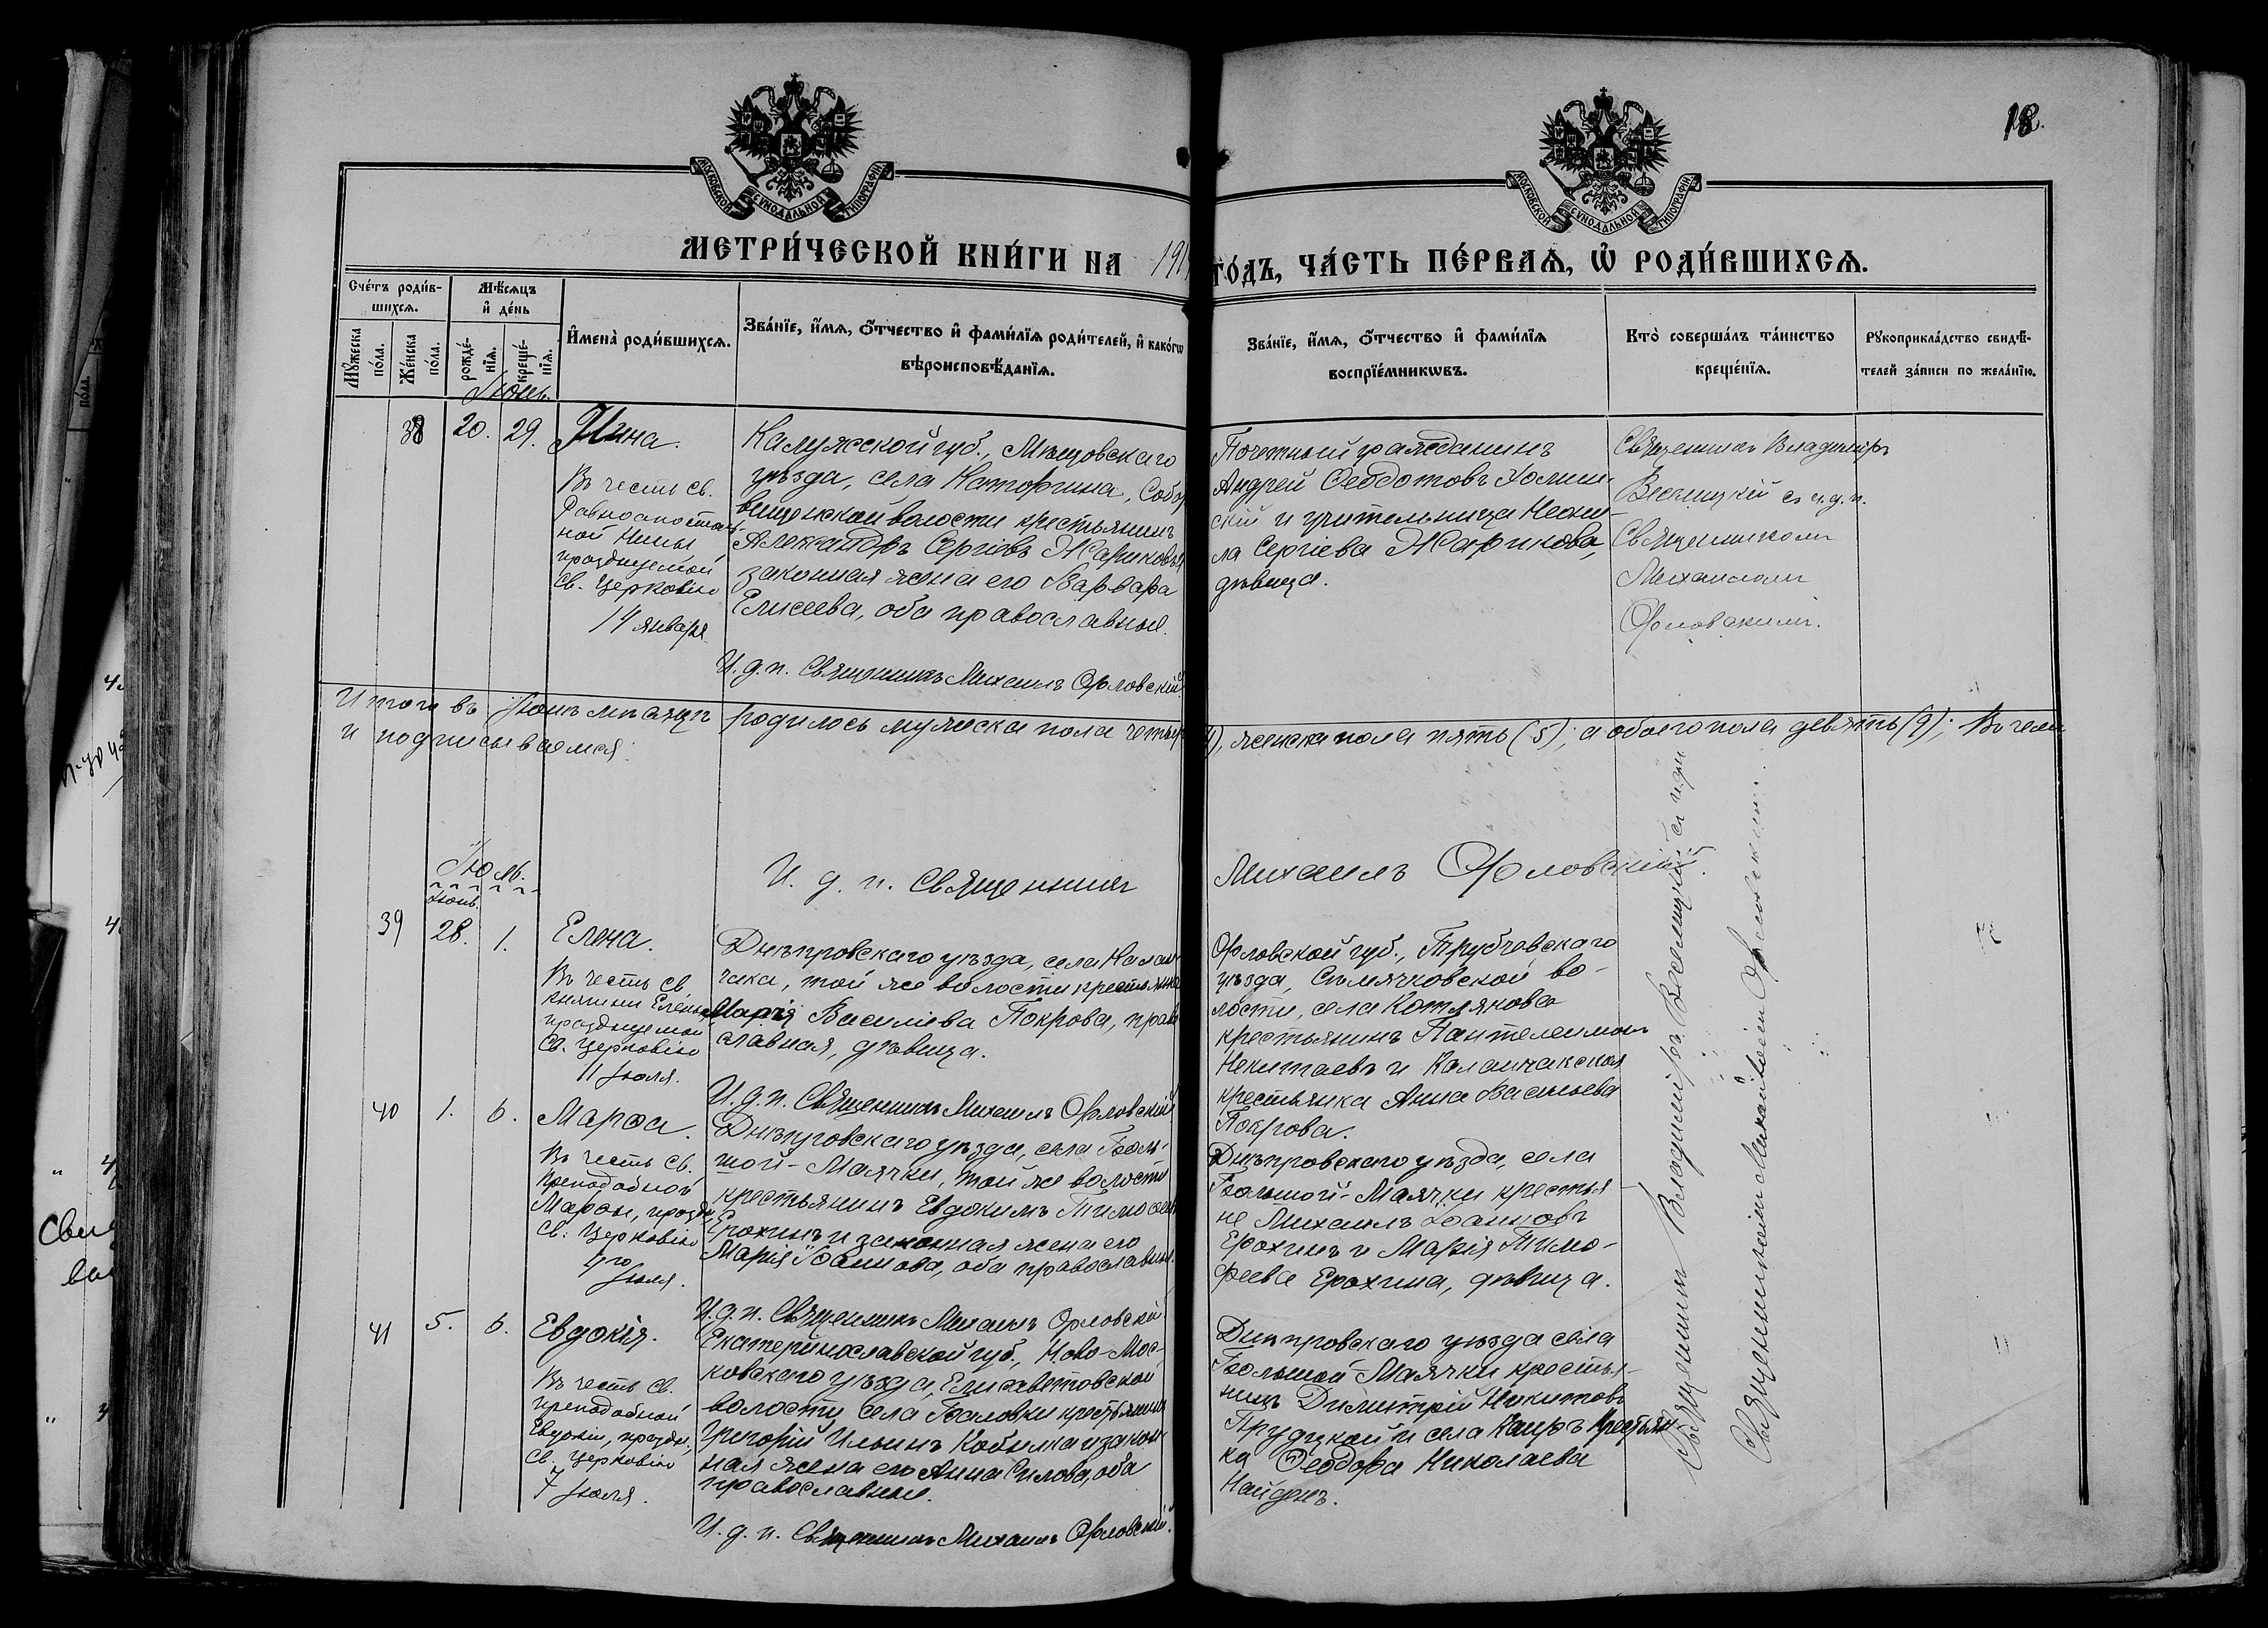 18.
МОСКОВСКОЙ СѴНОДАЛЬНОЙ ТИПОГРАФІИ
МОСКОВСКОЙ СѴНОДАЛЬНОЙ ТИПОГРАФІИ
МЕТРИ́ЧЕСКОЙ КНИ́ГИ НА 191
ГО́ДЪ, ЧА́СТЬ ПЕ́РВАѦ, Ѡ҆ РОДИ́ВШИХСѦ.
Сче́тъ роди́в-
шихсѧ.
Мѣ́сѧцъ
и҆ де́нь
Мꙋжеска
по́ла.
Же́нска
по́ла.
рожде́-
нїѧ.
креще́-
нїѧ.
И҆мена̀ роди́вшихсѧ.
Зва́нїе, и҆́мѧ, ѻ҆́тчество и҆ фами́лїѧ роди́телей, и҆ како́гѡ
вѣроисповѣ́данїѧ.
Зва́нїе, и҆́мѧ, ѻ҆́тчество и҆ фами́лїѧ
воспрїе́мникѡвъ.
Кто̀ соверша́лъ та́инство
креще́нїѧ.
Рꙋкоприкла́дство свидѣ́-
телей за́писи по жела́нїю.
Іюнь.
38 20. 29. Нина.
Въ честь св.
Равноапостоль-
ной Нины
празднуемой
Св. Церковію
14 января
Калужской губ., Мещовскаго
уѣзда, села Каторгина,
волости крестьянинъ
Александръ Сергіевъ Жариковъ и
законная жена его Варвара
Елисеева, оба православные.
И. д. п. Священникъ Михаилъ Орловскій.
Почетный гражданинъ
Андрей Ѳеодотовъ
скій и учительница Неони-
ла Сергіева Жарикова,
дѣвица.
Священникъ Владиміръ
съ и. д. п.
Священникомъ
Михаиломъ
Орловскимъ.
Итого въ Іюнѣ мѣсяцѣ родилось мужеска пола четыр
4), женска пола пять (5); а обоего пола девять (9); Въ чемъ
и подписываемся:
И. д. п. Священникъ
Михаилъ Орловскій.
Іюль.
Іюнь
39 28. 1. Елена.
Въ честь св.
княгини Елены
празднуемой
Св. Церковію
11 Іюля.
Днѣпровскаго уѣзда, села Калан-
чака, той же волости крестьянка
Марія Василіева Покрова, право
славная, дѣвица.
И. д. п. Священникъ Михаилъ Орловскій
Орловской губ., Трубчевскаго
уѣзда, во-
лости, села Котлякова
крестьянинъ Пантелеимонъ
Некитаевъ и Каланчакская
крестьянка Анна Васильева
Покрова.
40 1. 6. Марѳа.
Въ честь св.
преподобной
Марѳы, праздн.
Св. Церковію
4го
Іюля.
Днѣпровскаго уѣзда, села Боль-
шой-Маячки, той же волости
крестьянинъ Евдокимъ Тимоѳеевъ
Ерохинъ и законная жена его
Марія Іоаннова, оба православные.
И. д. п. Священникъ Михаилъ Орловскій
Днѣпровскаго уѣзда, села
Большой-Маячки крестья-
не Михаилъ Іоанновъ
Ерохинъ и Марія Тимо-
феева Ерохина, дѣвица.
41 5. 6. Евдокія.
Въ честь св.
преподобной
Евдокіи, праздн.
Св. Церковію
7 Іюля.
Екатеринославской губ., Ново-Мос-
ковскаго уѣзда, Елисаветовской
волости, села крестьянинъ
Григорій Ильинъ Кобылка и закон
ная жена его Анна Силова, оба
православные.
И. д. п. Священникъ Михаилъ Орловскій.
Днѣпровскаго уѣзда села
Большой-Маячки крестья-
нинъ Димитрій Никитовъ
Прудкой и села Каиръ крестьян
ка Ѳеодора Николаева
Найденъ.
Священникъ Владиміръ съ и. д. п.
Священникомъ Михаиломъ Орловскимъ.